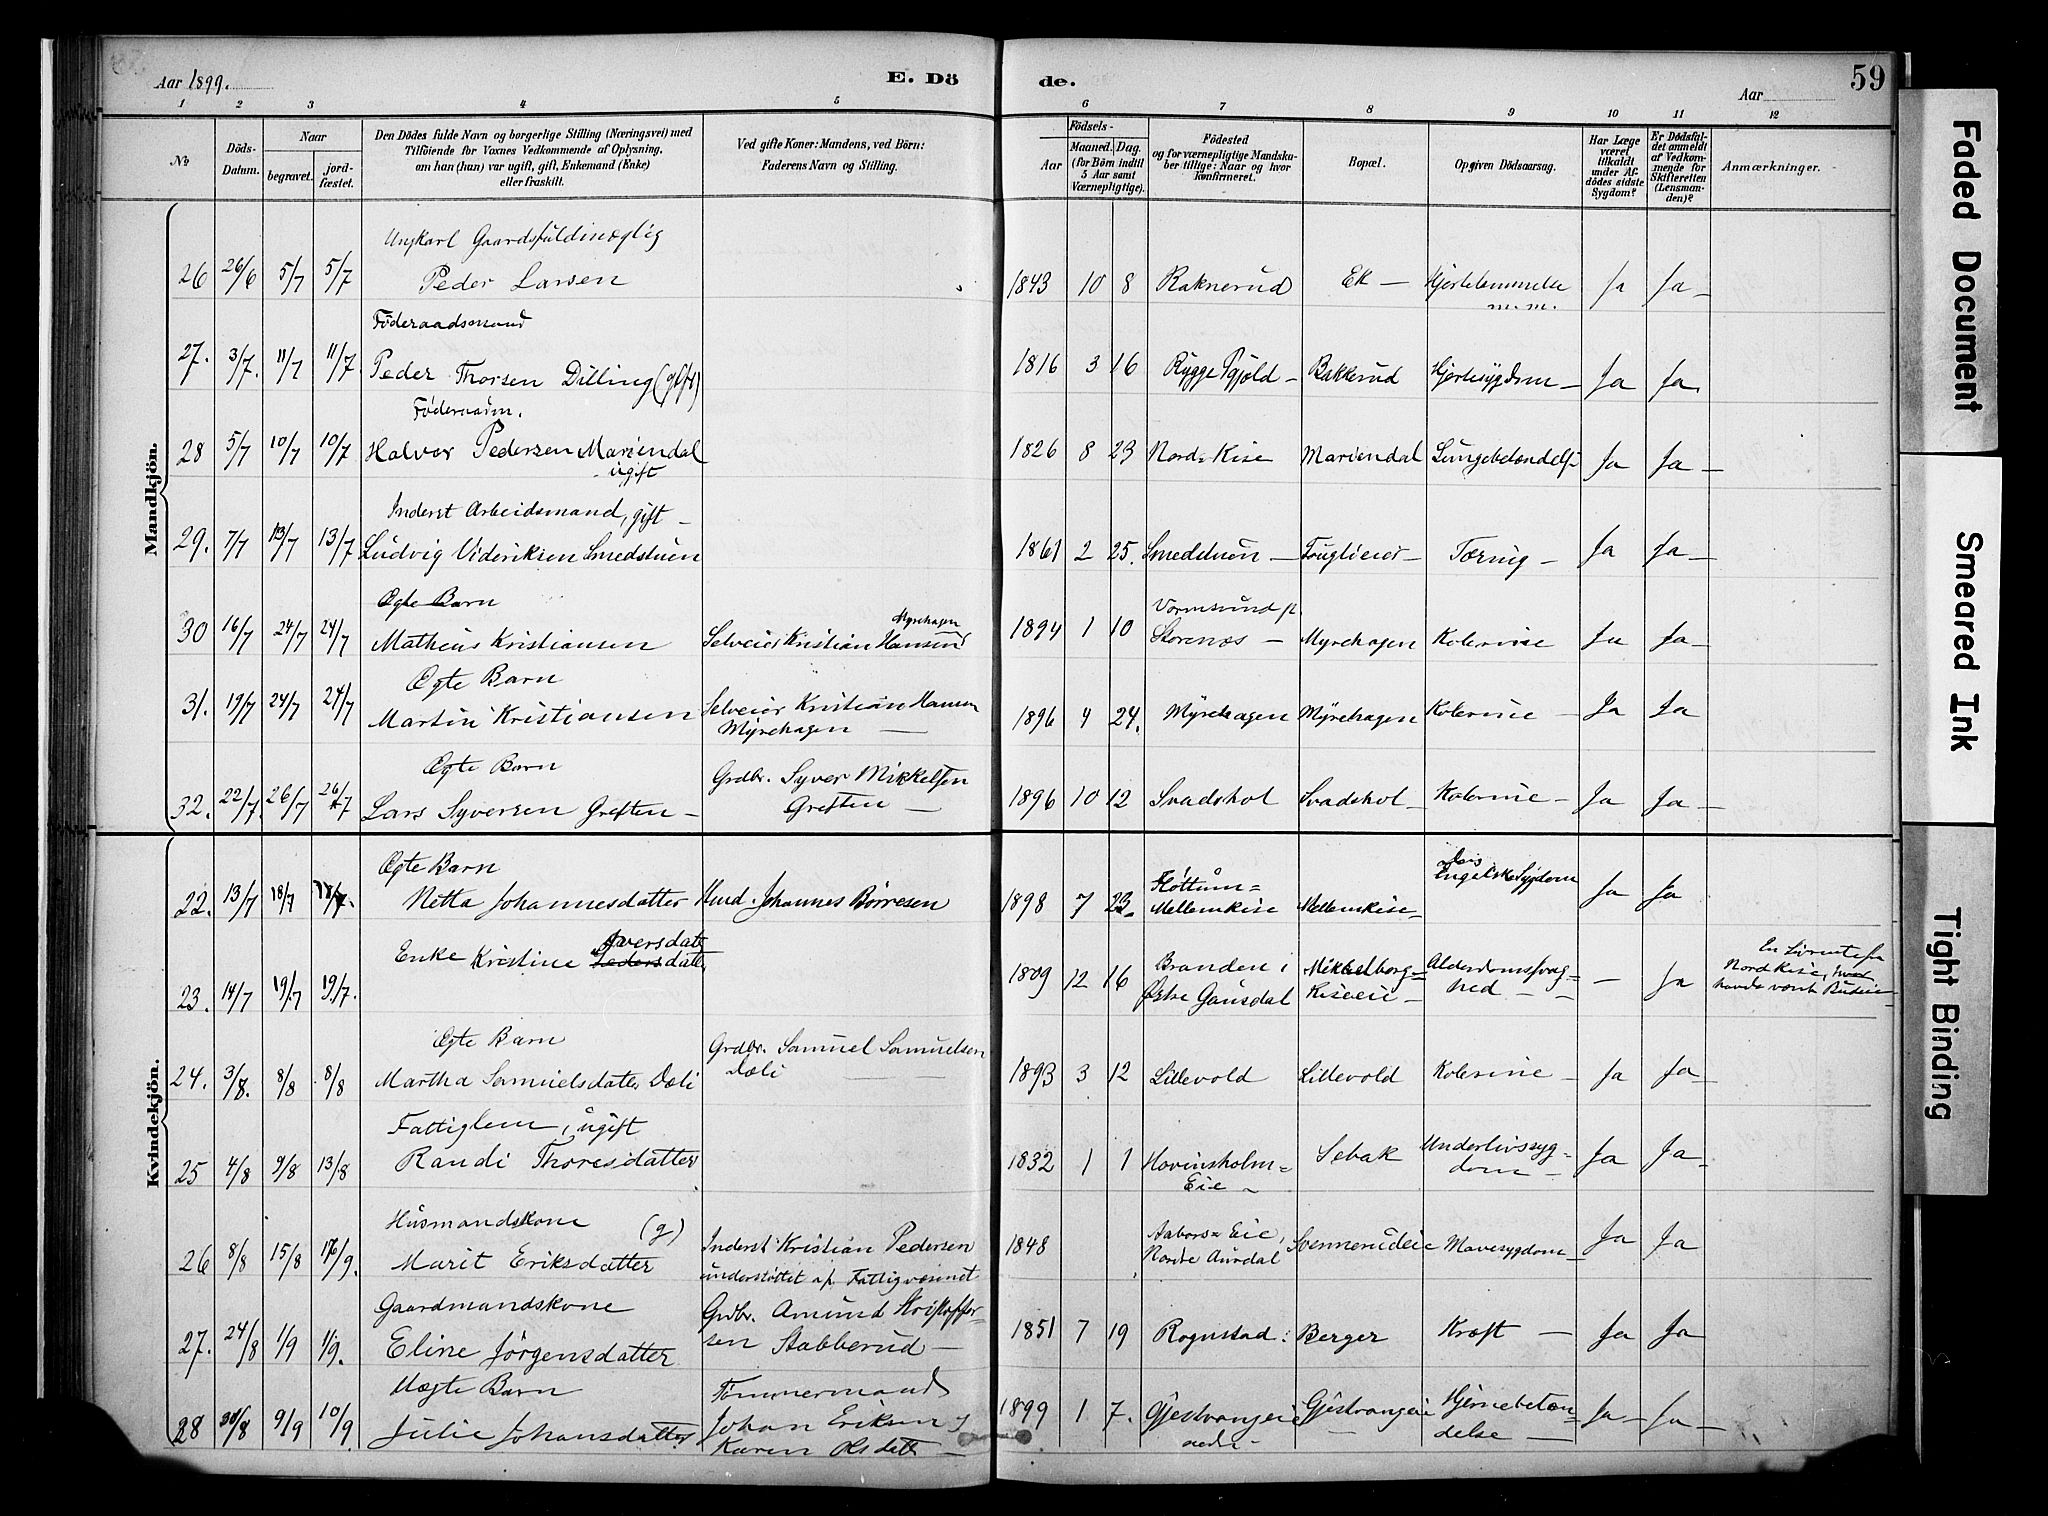 Aar 1899.
E. Dö
de.
Aar
59
1 2 3 4 5 6 7 8 9 10 11 12
No
Döds-
Datum.
Naar
begravet.
jord-
fæstet.
Den Dödes fulde Navn og borgerlige Stilling (Næringsvei) med
Tilföiende for Voxnes Vedkommende af Oplysning,
om han (hun) var ugift, gift, Enkemand (Enke)
eller fraskilt.
Ved gifte Koner: Mandens, ved Börn:
Faderens Navn og Stilling.
Födsels-
Aar
Maaned. Dag.
(for Börn indtil
5 Aar samt
Værnepligtige).
Födested
og for værnepligtige Mandska-
ber tillige: Naar og hvor
konfirmeret.
Bopæl.
Opgiven Dödsaarsag.
Har Læge
været
tilkaldt
under Af-
dödes sidste
Sygdom?
Er Dödsfal-
det anmeldt
af Vedkom-
mende for
Skifteretten
(Lensman-
den)?
Anmærkninger.
Mandkjön.
Ungkarl
26 26/6 5/7 5/7 Peder Larsen 1843 10 8 Raknerud Ek — Hjertelammelse Ja Ja —
m.m.
Föderaadsmand
27. 3/7. 11/7 11/7 Peder Thorsen Dilling (gift) 1816 3 16 Rygge — Bakkerud Hjertesygdom — Ja Ja
28 5/7 10/7 10/7 Halvor Pedersen Mariendal 1826 8 23 Nord-Kise Mariendal Lungebetændelse Ja Ja —
ugift
Inderst Arbeidsmand, gift —
29. 7/7 13/7 13/7 Ludvig Dideriksen Smedstuen 1861 2 25. Smedstuen — Tæring — Ja Ja —
Ægte Barn
Myrehagen
Vormsund
30 16/7 24/7 24/7 Matheus Kristiansen Selveier Kristian Hansen 1894 1 10 Storenes — Myrehagen Kolerine Ja Ja —
Ægte Barn
31. 19/7 24/7 24/7 Martin Kristiansen Selveier Kristian Hansen 1896 4 24. Myrehagen Myrehagen Kolerine — Ja Ja
Myrehagen —
Ægte Barn
Grdbr. Syver Mikkelsen
32. 22/7. 26/7 26/7 Lars Syversen Greften — Greften — 1896 10 12 Svadshol Svadshol — Kolerine — Ja Ja —
Kvindekjön.
Ægte Barn
Engelsk Sygdom
22. 13/7 18/7 18/7. Netta Johannesdatter Hmd. Johannes Börresen 1898 7 23. Mellemkise Mellemkise — Ja Ja
Enke Kristine Iversdatr
23. 14/7 19/7 19/7. 1809 12 16 Branden i Mikkelborg — Alderdomssvag- — Ja
Østre Gausdal Kiseeie — hed —
Nordkise,
Ægte Barn
Grdbr. Samuel Samuelsen
24. 3/8. 8/8 8/8 Martha Samuelsdatter Dæli Dæli 1893 3 12 Lillevold Lillevold Kolerine — Ja Ja —
Fattiglem, ugift
25 4/8 9/8 13/8 Randi Thoresdatter 1832 1 1 Hovinsholm= Sebak Underlivssyg- Ja Ja —
Eie — dom —
Husmandskone (g)
26 8/8 15/8 17/9. Marit Eriksdatter Inderst Kristian Pedersen 1848 Aabors= Eie, Svennerudeie Mavesygdom Ja Ja
understöttet af Fattigvæsenet Nordre Aurdal
Gaardmandskone
Grdbr. Amund Kristoffer-
27. 24/8 1/9 1/9. Eline Jörgensdatter sen Stabberud — 1851 7 19 Rognstad Berger Kræft — Ja Ja
Uægte Barn
Tömmermand
28 30/8 9/9 10/9. Julie Johansdatter Johan Eriksen 1899 1 7. Gjestvangeie Gjestvangeie Hjernebetæn- Ja — Ja —
Karen Olsdatt — nedr. delse —
Faded Document
Smeared Ink
Tight Binding